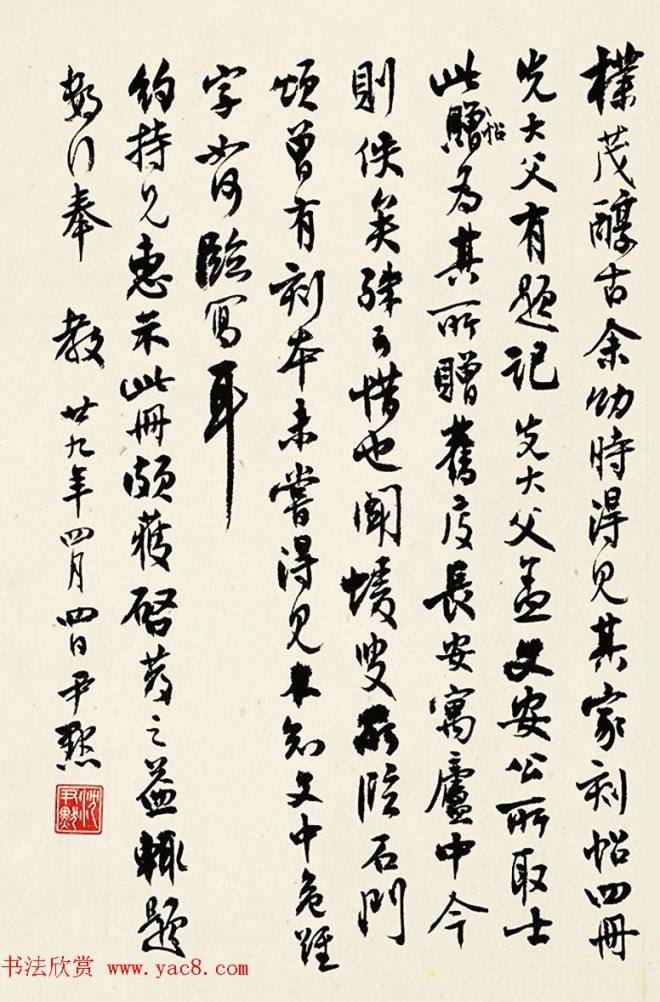 樸茂醇古余幼時得見其家刻帖四冊
先大父有題記先大父盖文安公所取士
此帖贈为其所贈舊庋長安寓廬中今
則佚矣殊可惜也聞蝯叟所臨石門
頌曾有刻本未嘗得見未知文中危難
字如何臨寫耳
約持兄惠示此冊頗獲啓之益輒題
数行奉 教 廿九年四月四日尹默
沈尹默
书法欣赏 www.yac8.com